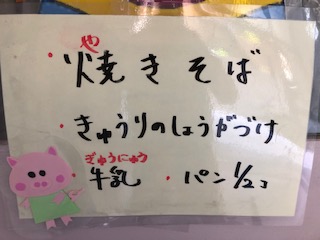 や
・焼きそば
・きゅうりのしょうがづけ
ぎゅうにゅう
・牛乳 ・パン1/2コ